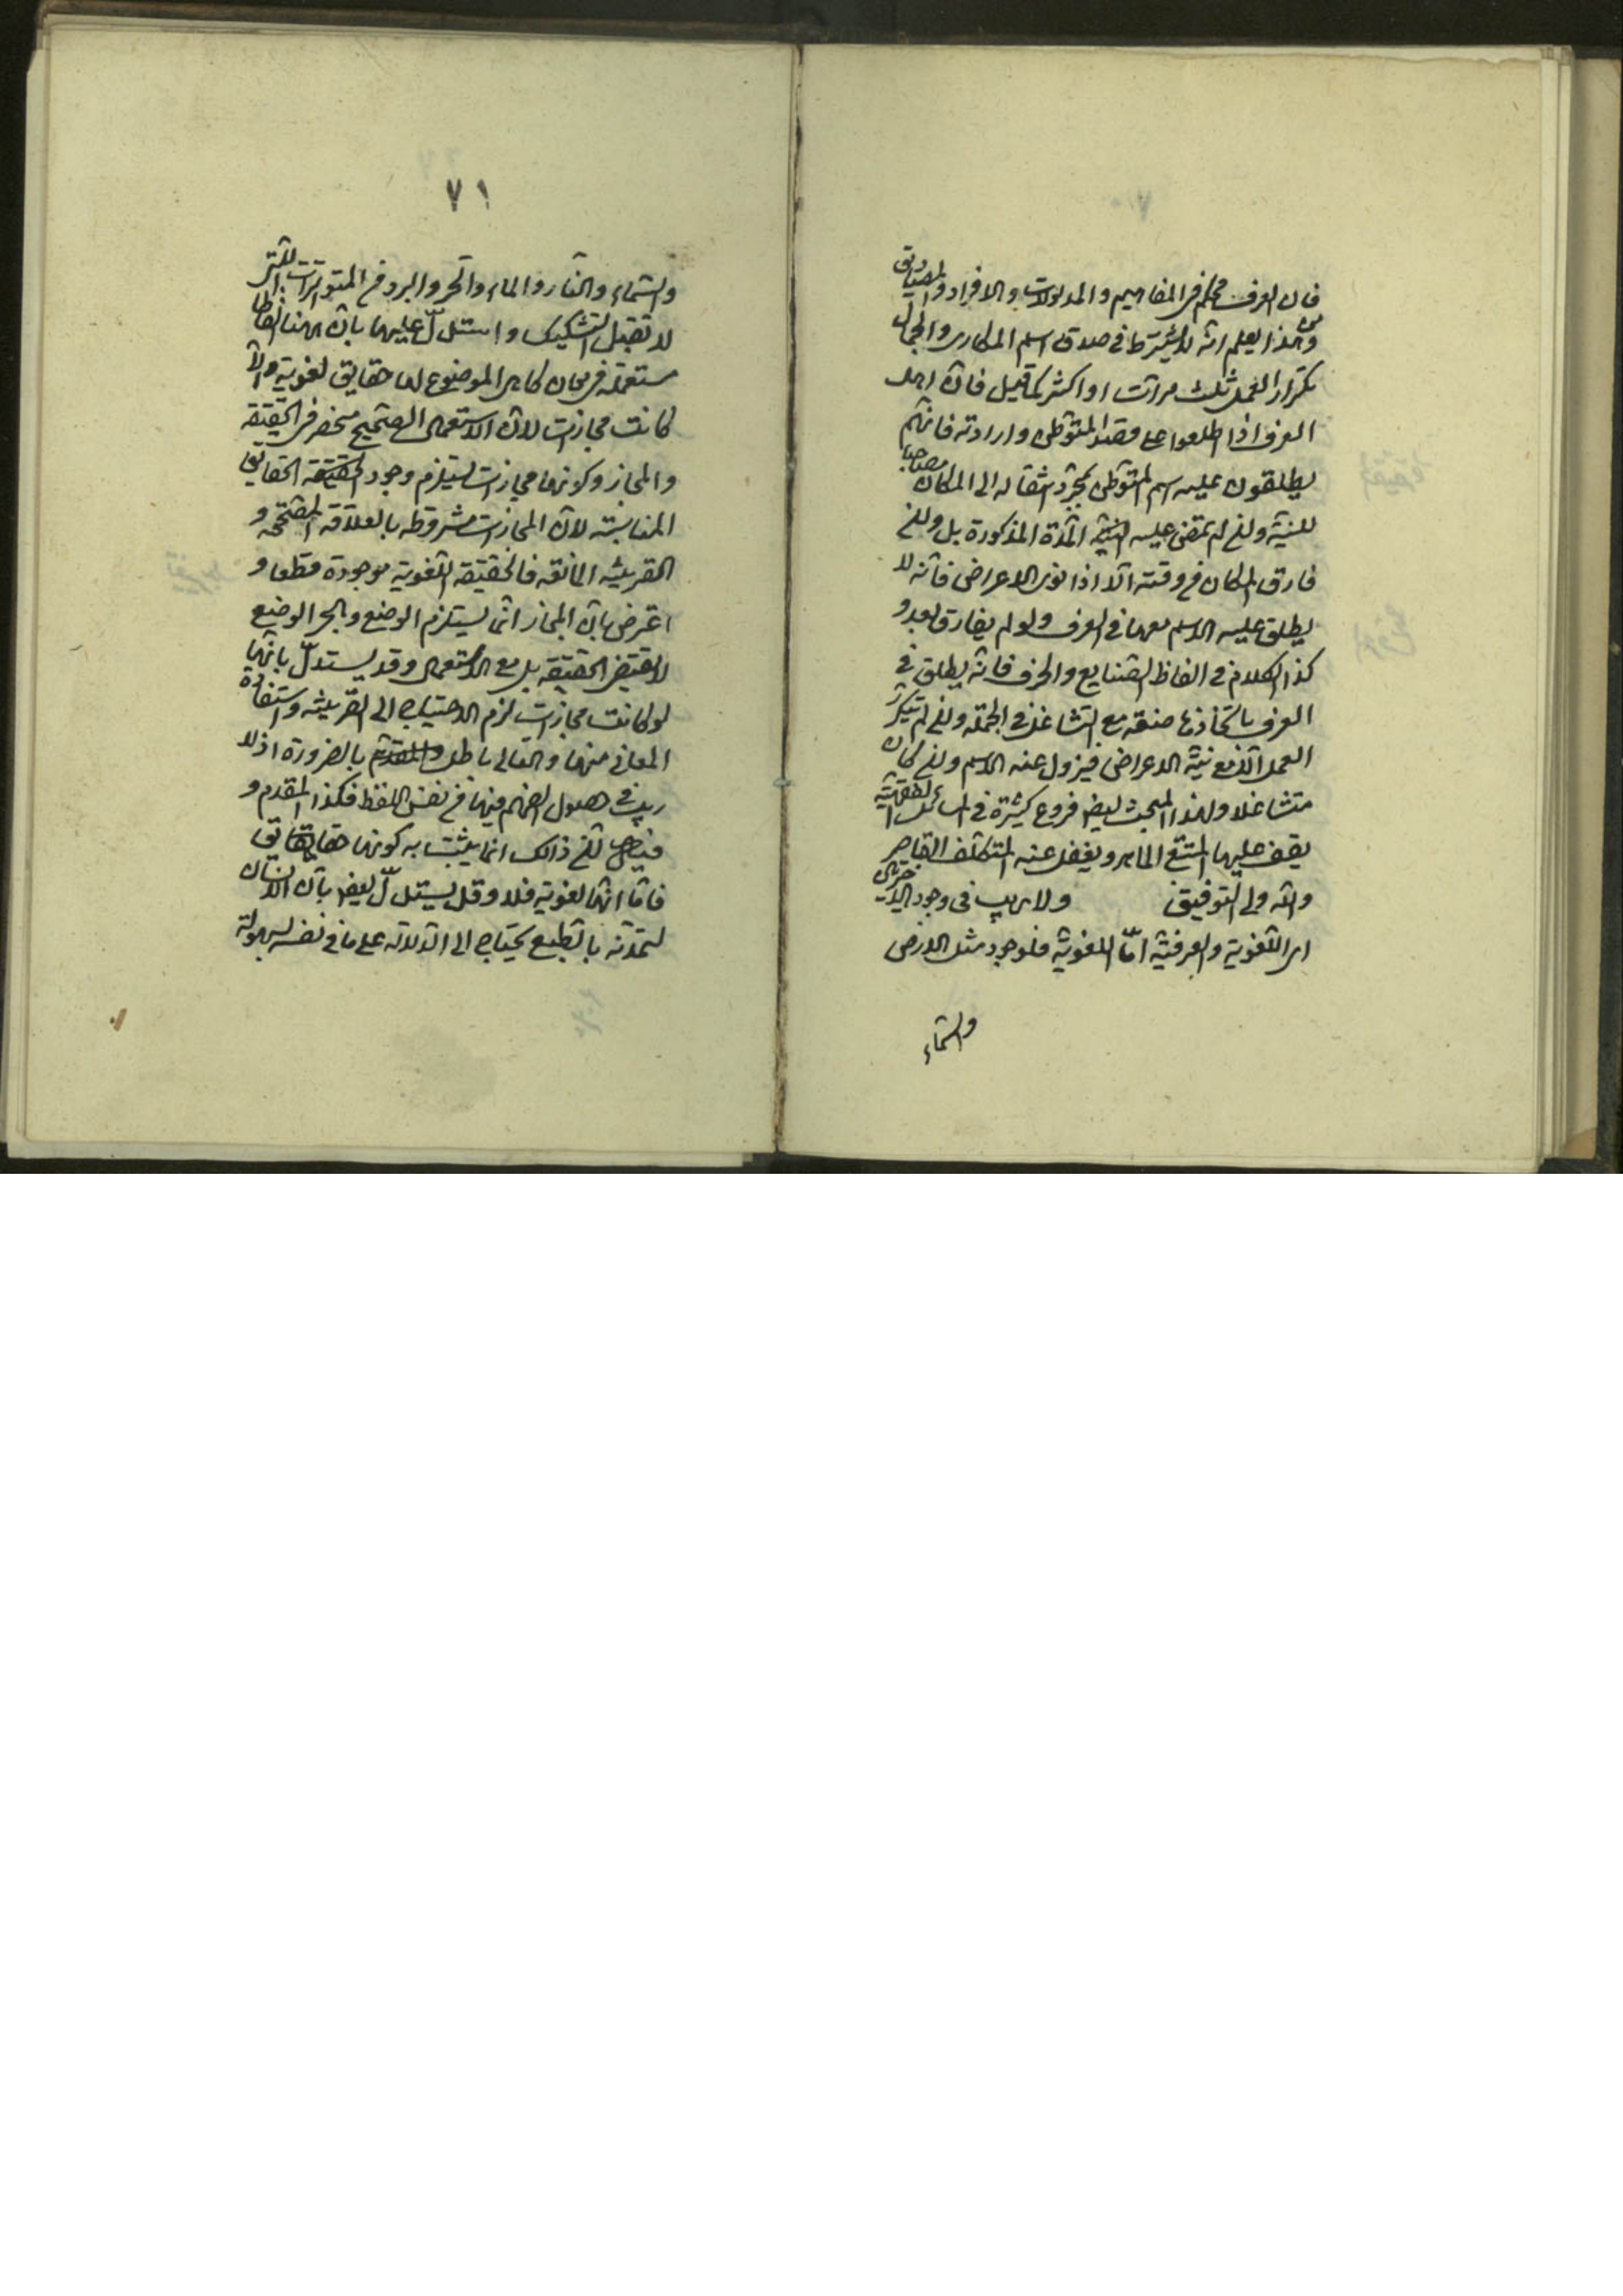 فان العرف محكم فى المفاهيم والمدلولات والافراد والمصاديق
ومن هذا يعلم انه لا يشترط فى صدق اسم المكارى والجمال
تكرار العمل ثلث مرات او اكثر كما قيل فان اهل
العرف اذا اطلعوا على قصد المتوطن وارادته فانهم
يطلقون عليه اسم المتوطن بمجرد انتقاله الى المكان مصاحبا
للنية وان لم تمض عليه المدة المذكورة بل وان
فارق المكان فى وقته الا اذا نوى الاعراض فانه لا
يطلق عليه الاسم معها فى العرف ولو لم يفارق بعد و
كذا الكلام فى الفاظ الصنايع والحرف فانه يطلق فى
العرف باتخاذها صنعة مع التشاغل فى الجملة وان لم يتكرر
العمل الا مع نية الاعراض فيزول عنه الاسم وان كان
متشاغلا ولهذا المبحث ايضا فروع كثيرة فى المسائل الفقهية
يقف عليها المتتبع الماهر ويغفل عنه المتكلف القاصر
والله ولى التوفيق ولا ريب فى وجود الاخريين
اى اللغوية والعرفية اما اللغوية فلوجود مثل الارض
والسماء
٧١
والسماء والنار والماء والحر والبرد من المتواترات التى
لا تقبل التشكيك واستدل عليها بان ههنا الفاظا
مستعملة فى معان كاهى الموضوع لها حقايق لغوية والا
كانت مجازات لان الاستعمال الصحيح منحصر فى الحقيقة
والمجاز وكونها مجازات يستلزم وجود الحقيقة الحقايق
المناسبة لان المجازات مشروطة بالعلاقة المصححة و
القرينة المانعة فالحقيقة اللغوية موجودة قطعا و
اعترض بان المجاز انما يستلزم الوضع ومجرد الوضع
لا يقتضى الحقيقة بل مع الاستعمال وقد يستدل بانها
لو كانت مجازات لزم الاحتياج الى القرينة واستفادة
المعانى منها والتالى باطل والمقدم بالضرورة اذ لا
ريب فى حصول الفهم فيها من نفس اللفظ فكذا المقدم و
فيه ان ذالك انما يثبت به كونها حقايق
فاما انها لغوية فلا وقد يستدل ايضا بان الانسان
لتمدنه بالطبع يحتاج الى الدلالة على ما فى نفسه بسهولة